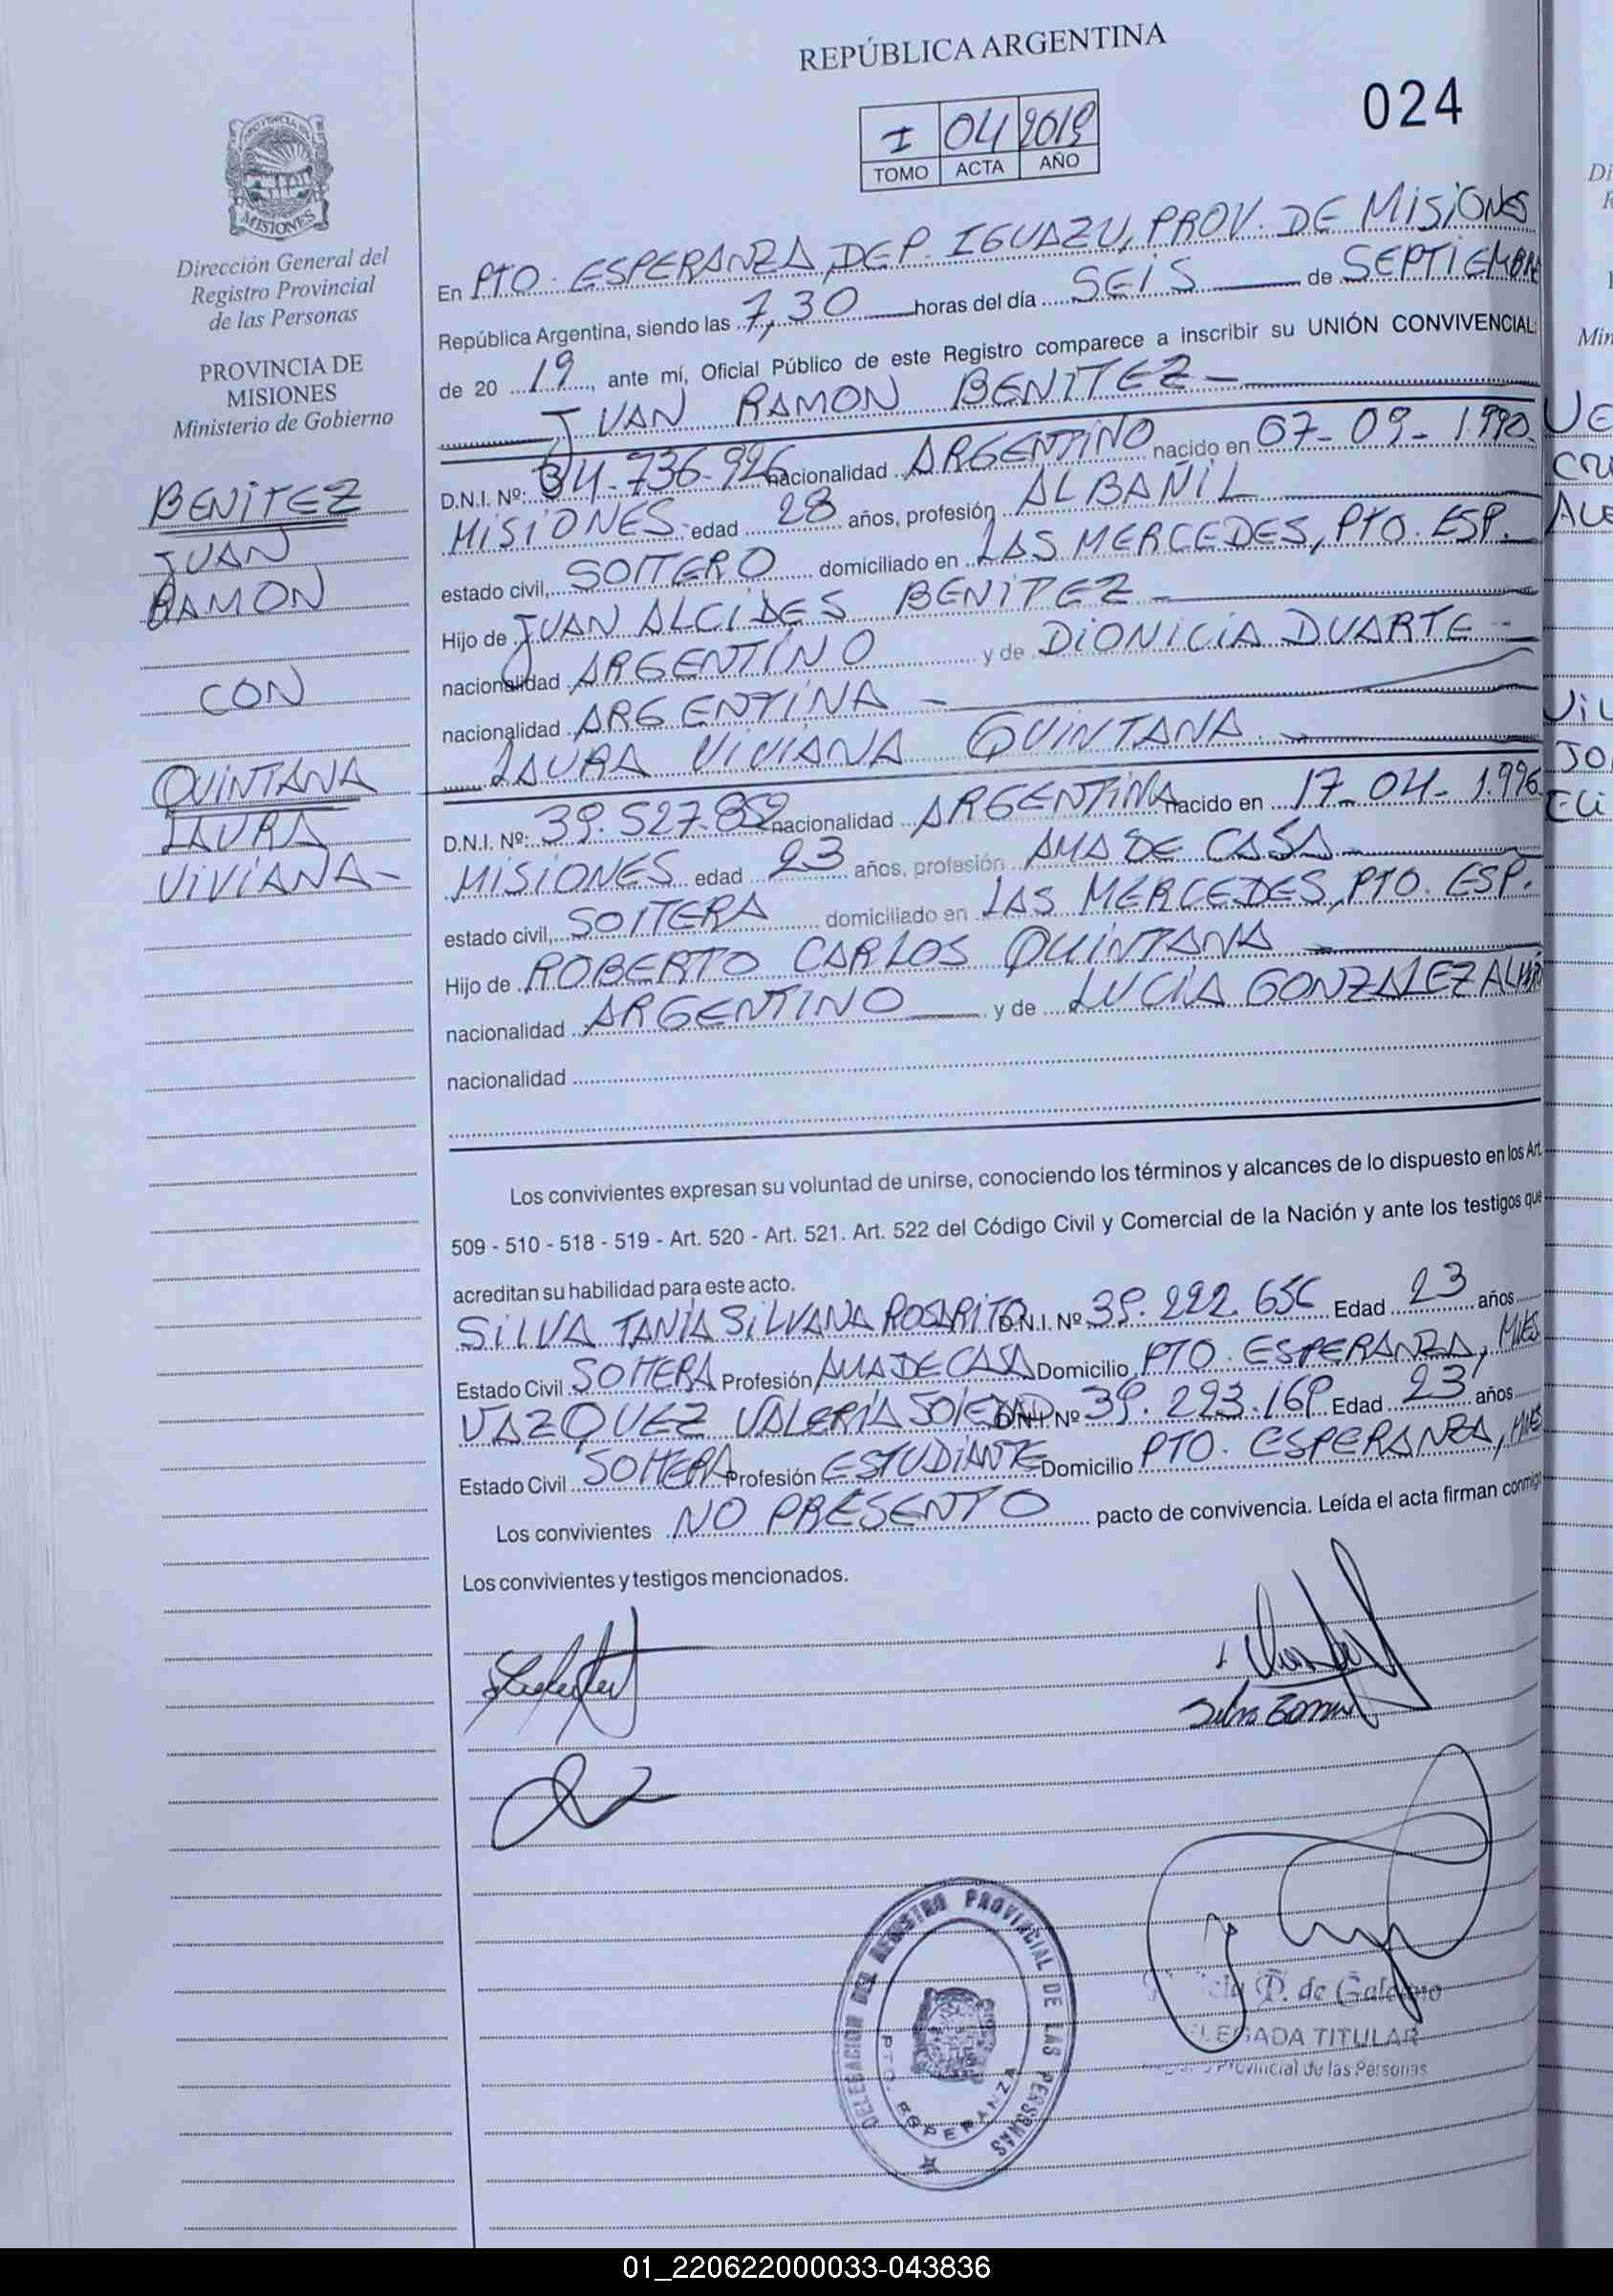 REPÚBLICA ARGENTINA
024
I 04 2019
TOMO ACTA AÑO
PROVINCIA DE
MISIONES
Dirección General del
Registro Provincial
de las Personas
PROVINCIA DE
MISIONES
Ministerio de Gobierno
BENITEZ
JUAN
RAMON
CON
QUINTANA
LAURA
VIVIANA-
En PTO. ESPERANZA, DEP. IGUAZU, PROV. DE MISIONES
República Argentina, siendo las 7,30 horas del día SEIS de SEPTIEMBRE
de 20 19, ante mí, Oficial Público de este Registro comparece a inscribir su UNIÓN CONVIVENCIAL:
JUAN RAMON BENITEZ-
D.N.I. Nº: 34.736.926 nacionalidad ARGENTINO nacido en 07-09-1.990.
MISIONES edad 28 años, profesión ALBAÑIL
estado civil, SOLTERO domiciliado en LAS MERCEDES, PTO. ESP.
Hijo de JUAN ALCIDES BENITEZ-
nacionalidad ARGENTINO y de DIONICIA DUARTE
nacionalidad ARGENTINA-
LAURA VIVIANA QUINTANA.
D.N.I. Nº: 39.527.852 nacionalidad ARGENTINA nacido en 17-04-1.996
MISIONES edad 23 años, profesión AMA DE CASA
estado civil, SOLTERA domiciliado en LAS MERCEDES, PTO. ESP.
Hijo de ROBERTO CARLOS QUINTANA
nacionalidad ARGENTINO y de LUCIA GONZALEZ
nacionalidad
Los convivientes expresan su voluntad de unirse, conociendo los términos y alcances de lo dispuesto en los Art.
509 - 510 - 518 - 519 - Art. 520 - Art. 521. Art. 522 del Código Civil y Comercial de la Nación y ante los testigos que
acreditan su habilidad para este acto.
SILVA TANIA SILVANA ROSARITO D.N.I. Nº 39.222.656 Edad 23 años
Estado Civil SOLTERA Profesión AMA DE CASA Domicilio PTO. ESPERANZA, MNES
VAZQUEZ VALERIA SOLEDAD D.N.I. Nº 39.223.169 Edad 23 años
Estado Civil SOLTERA Profesión ESTUDIANTE Domicilio PTO. ESPERANZA, MNES
Los convivientes NO PRESENTO pacto de convivencia. Leída el acta firman conmigo
Los convivientes y testigos mencionados.
DELEGACION DEL REGISTRO PROVINCIAL DE LAS PERSONAS
PTO. ESPERANZA
P. de Galeano
DELEGADA TITULAR
Provincial de las Personas
01_220622000033-043836